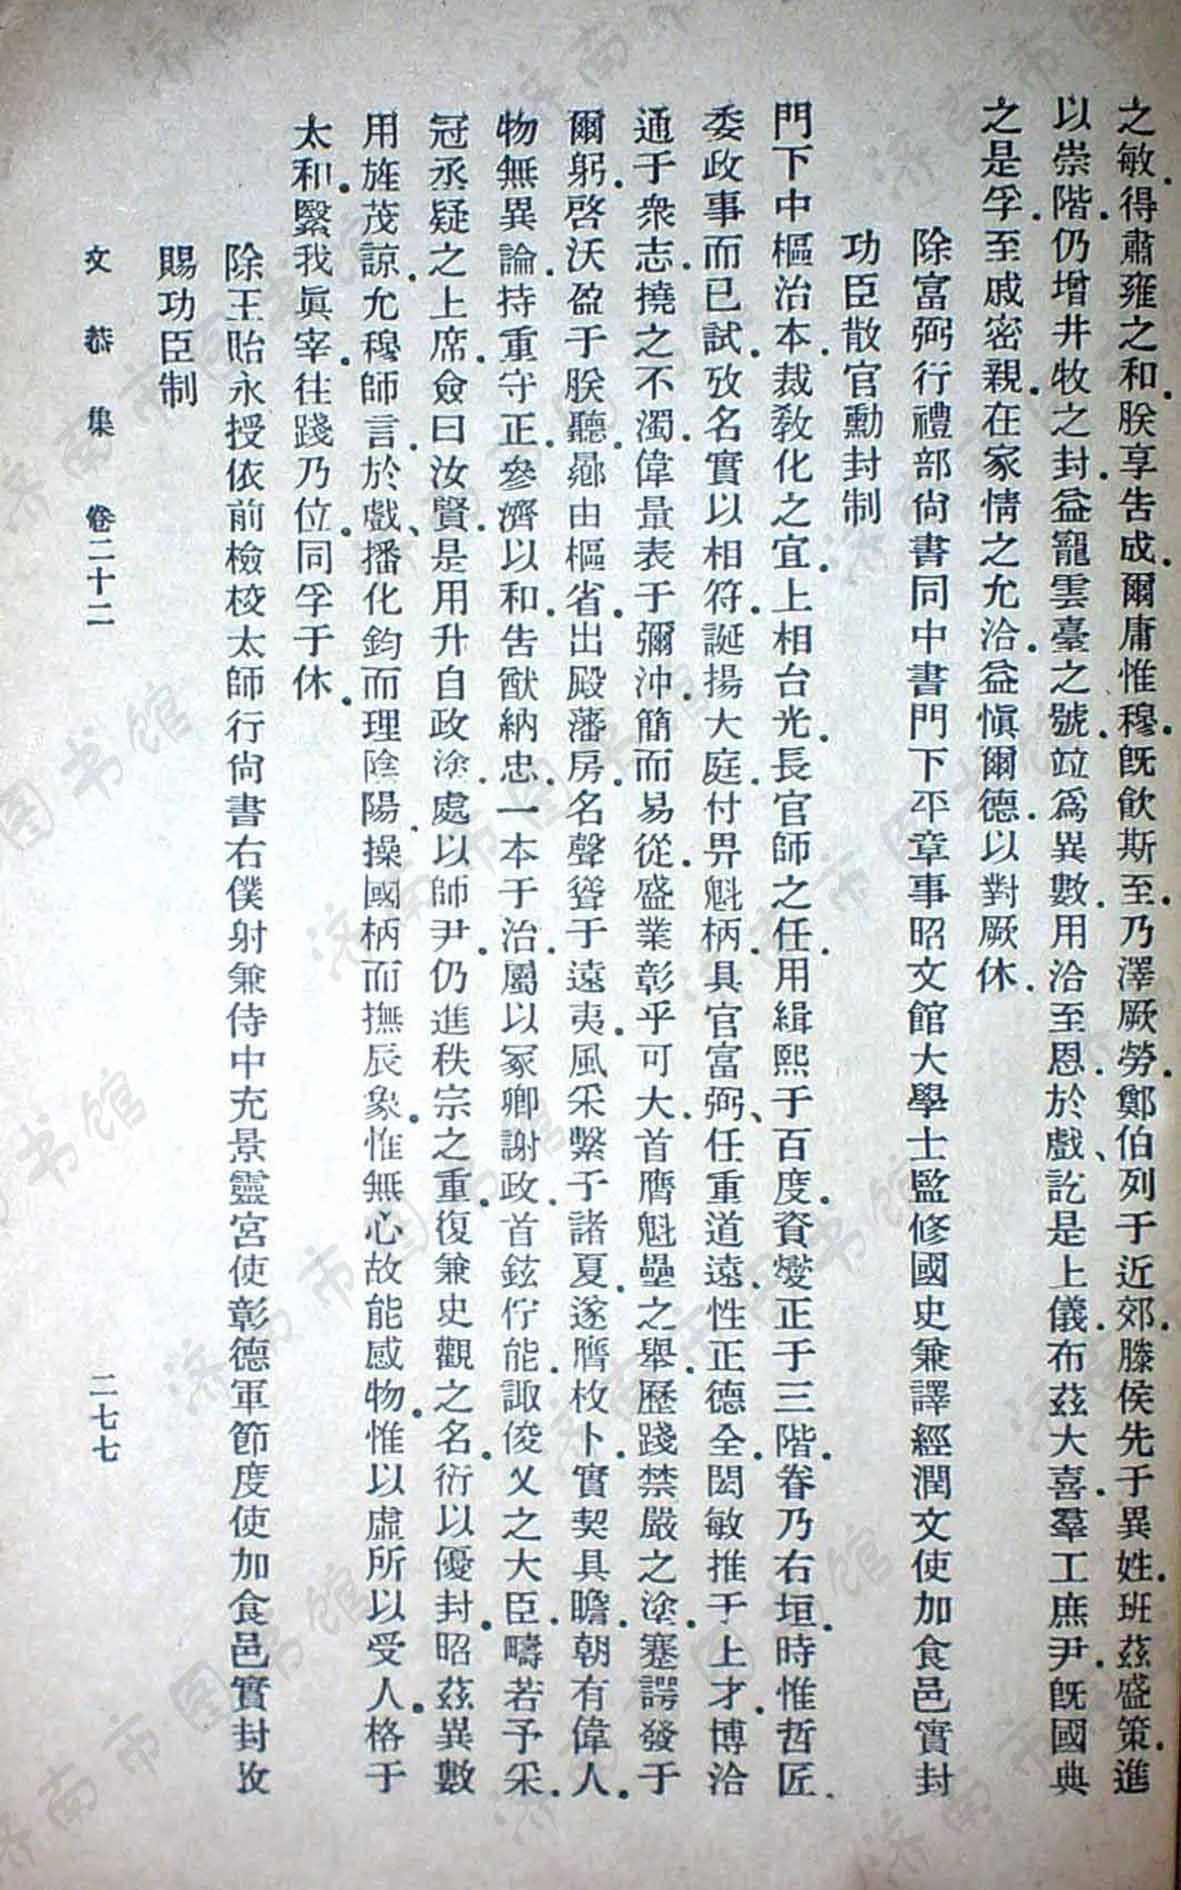 之敏。得肅雍之和。朕享告成。爾庸惟穆。既飮斯至。乃澤厥勞。鄭伯列于近郊。滕侯先于異姓。班茲盛策。進
以崇階。仍增井牧之封。益寵雲臺之號。竝爲異數。用洽至恩。於戲、訖是上儀。布茲大喜。羣工庶尹。旣國典
之是孚。至戚密親。在家情之允洽。益愼爾德。以對厥休。
除富弼行禮部尙書同中書門下平章事昭文館大學士監修國史兼譯經潤文使加食邑實封
功臣散官勳封制
門下中樞治本。裁敎化之宜。上相台光。長官師之任。用緝熙于百度。資燮正于三階。眷乃右垣。時惟哲匠。
委政事而已試。攷名實以相符。誕揚大庭。付畀魁柄。具官富弼、任重道遠。性正德全。閎敏推于上才。博洽
通于衆志。撓之不濁。偉量表于彌沖。簡而易從。盛業彰乎可大。首膺魁壘之舉。歷踐禁嚴之塗。蹇諤發于
爾躬。啓沃盈于朕聽。曏由樞省。出殿藩房。名聲聳于遠夷。風采繫予諸夏。遂膺枚卜。實契具瞻。朝有偉人。
物無異論。持重守正。參濟以和。告猷納忠。一本于治。屬以冢卿謝政。首鉉佇能。諏俊乂之大臣。疇若予采。
冠丞疑之上席。僉曰汝賢。是用升自政塗。處以師尹。仍進秩宗之重。復兼史觀之名。衍以優封。昭茲異數
用旌茂諒。允穆師言。於戲、播化鈞而理陰陽。操國柄而撫辰象。惟無心故能感物。惟以虛所以受人。格于
太和。繄我眞宰。往踐乃位。同孚于休。
除王貽永授依前檢校太師行尙書右僕射兼侍中充景靈宮使彰德軍節度使加食邑實封攷
賜功臣制
文恭集 卷二十二 二七七
济南市图书馆